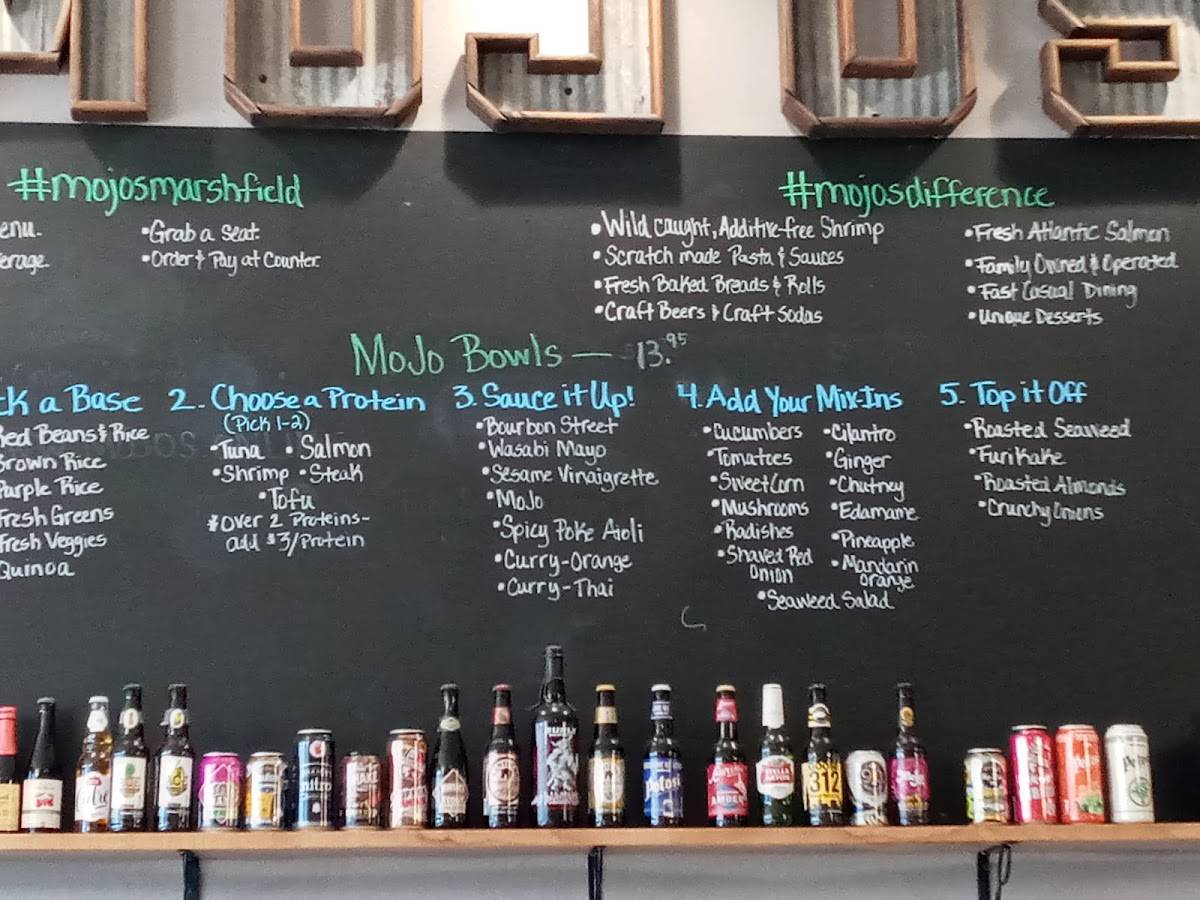 #mojosmarshfield
enu.
erage.
•Grab a Seat
•Order & Pay at Counter.
#mojosdifference
•Wild caught, Additive-free Shrimp
•Scratch made Pasta & Sauces
•Fresh Baked Breads & Rolls
•Craft Beers & Craft Sodas
•Fresh Atlantic Salmon
•Family Owned & Operated
•Fast Casual Dining
•Unique Desserts
MoJo Bowls — 13.95
ck a Base
Red Beans & Rice
Brown Rice
Purple Rice
Fresh Greens
Fresh Veggies
Quinoa
2. Choose a Protein
(Pick 1-2)
•Tuna •Salmon
•Shrimp •Steak
•Tofu
*Over 2 Proteins-
add $3/Protein
3. Sauce it Up!
•Bourbon Street
•Wasabi Mayo
•Sesame Vinaigrette
•MoJo
•Spicy Poke Aioli
•Curry-Orange
•Curry-Thai
4. Add Your Mix-Ins
•Cucumbers
•Tomatoes
•Sweet Corn
•Mushrooms
•Radishes
•Shaved Red
Onion
•Cilantro
•Ginger
•Chutney
•Edamame
•Pineapple
•Mandarin
orange
•Seaweed Salad
5. Top it Off
•Roasted Seaweed
•Furikake
•Roasted Almonds
•Crunchy Onions
nitro
Potosi
AMBER
STELLA
ARTOIS
312